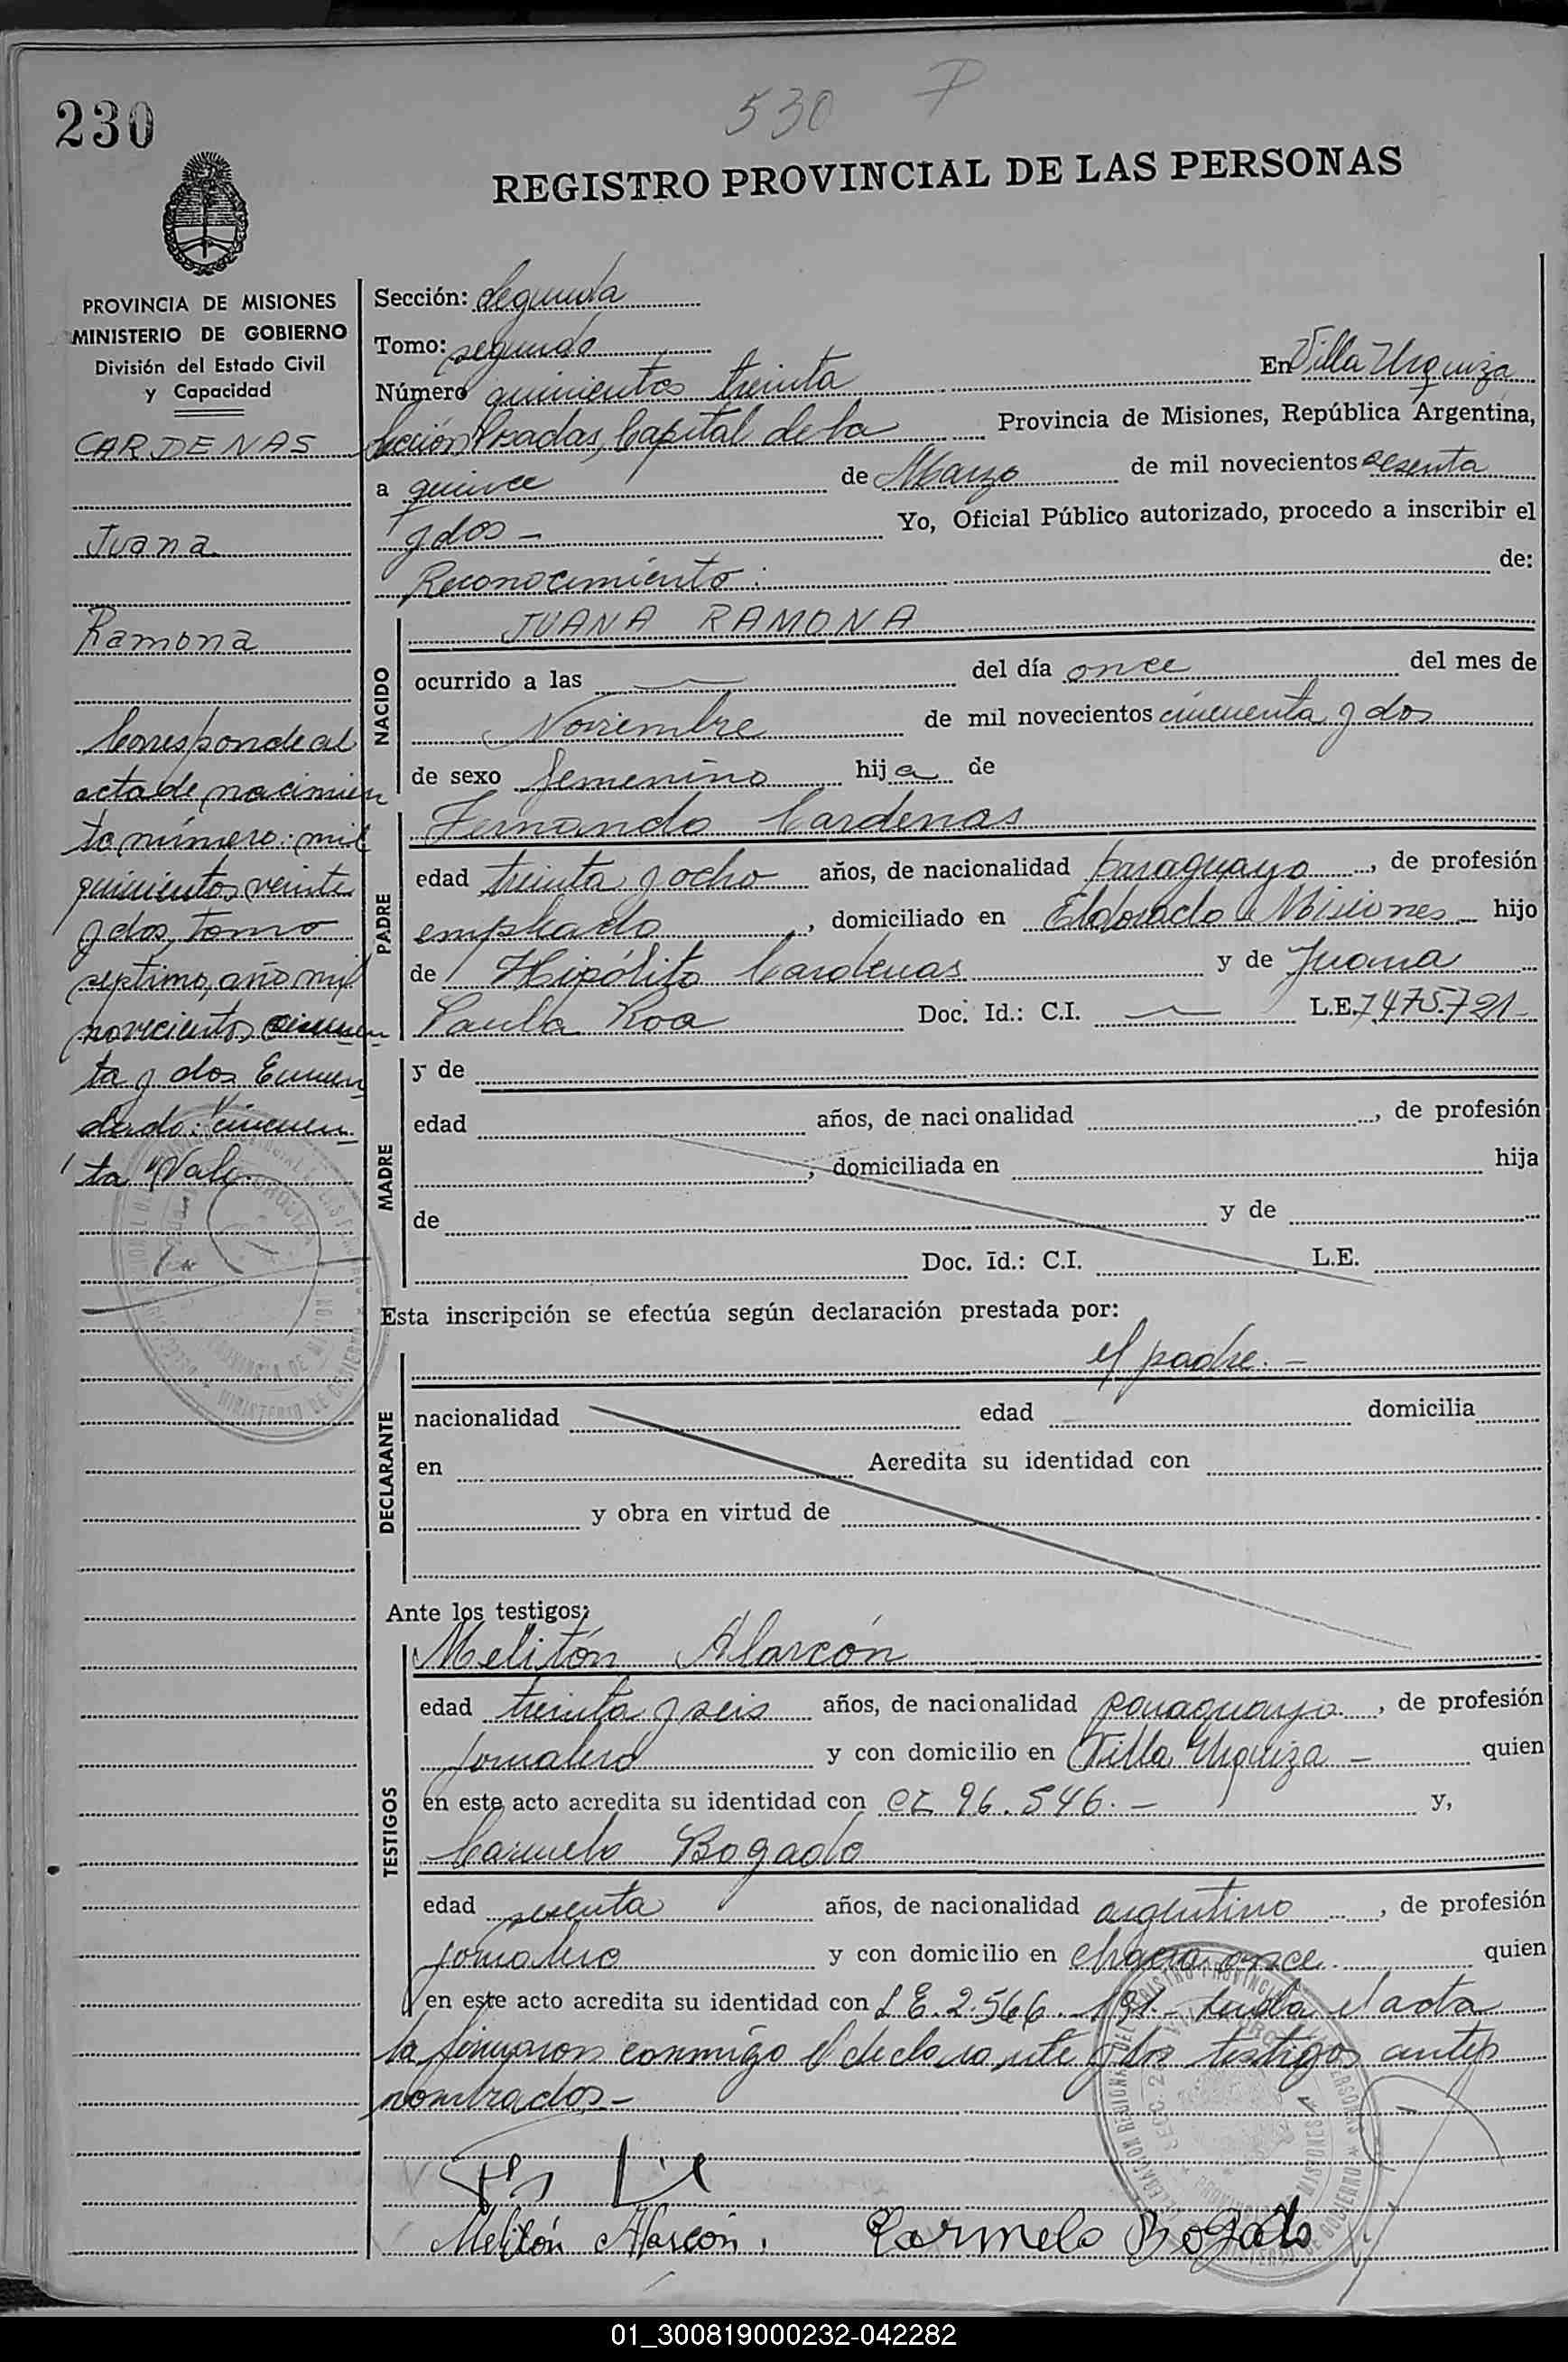 230
530
REGISTRO PROVINCIAL DE LAS PERSONAS
PROVINCIA DE MISIONES
MINISTERIO DE GOBIERNO
División del Estado Civil
y Capacidad
CARDENAS
Juana
Ramona
Corresponde al
acta de nacimien
to número: mil
quinientos veinte
y dos, tomo
septimo, año mil
novecientos cincuen
ta y dos Enmen
dado: "cincuen
ta" Vale.
Sección: segunda
Tomo: segundo
Número quinientos treinta En Villa Urquiza
sección Posadas, Capital de la Provincia de Misiones, República Argentina,
a quince de Marzo de mil novecientos sesenta
y dos - Yo, Oficial Público autorizado, procedo a inscribir el
Reconocimiento: de:
NACIDO
JUANA RAMONA
ocurrido a las — del día once del mes de
Noviembre de mil novecientos cincuenta y dos
de sexo femenino hija de
PADRE
Fernando Cardenas
edad treinta y ocho años, de nacionalidad paraguayo, de profesión
empleado, domiciliado en Eldorado Misiones - hijo
de Hipólito Cardenas y de Juana
Paula Roa Doc. Id.: C.I. — L.E. 7475.721-
MADRE
y de
edad años, de nacionalidad , de profesión
, domiciliada en hija
de y de
Doc. Id.: C.I. L.E.
Esta inscripción se efectúa según declaración prestada por:
DECLARANTE
el padre. -
nacionalidad edad domicilia
en Acredita su identidad con
y obra en virtud de
Ante los testigos:
TESTIGOS
Melitón Alarcón
edad treinta y seis años, de nacionalidad paraguayo, de profesión
jornalero y con domicilio en Villa Urquiza - quien
en este acto acredita su identidad con CI 96.546. - y,
Carmelo Bogado
edad sesenta años, de nacionalidad argentino, de profesión
jornalero y con domicilio en chacra once. quien
en este acto acredita su identidad con L E. 2.566. 191.- Leida el acta
la firmaron conmigo el declarante y los testigos antes
nombrados.-
Melitón Alarcón.
Carmelo Bogado
01_300819000232-042282